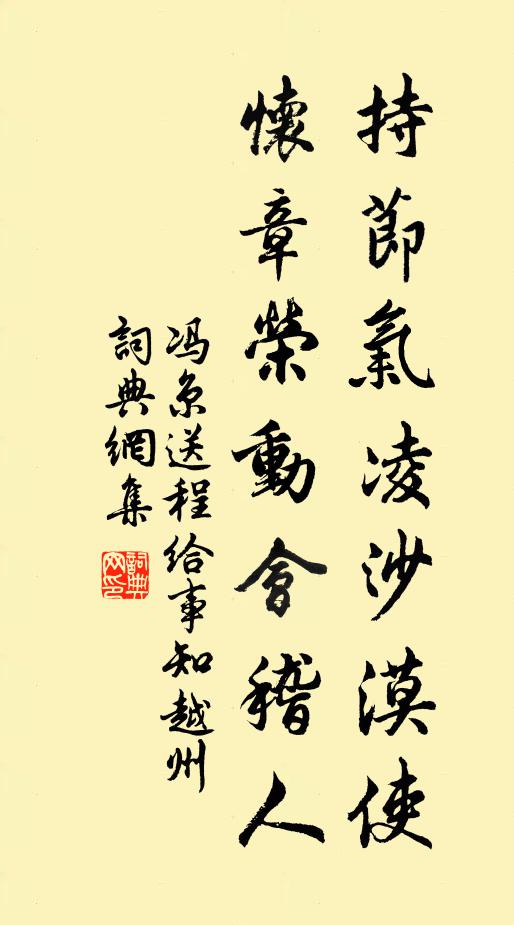 持節氣凌沙漠使
懷章榮動會稽人
冯京送程给事知越州
詞典網集
詞典網印